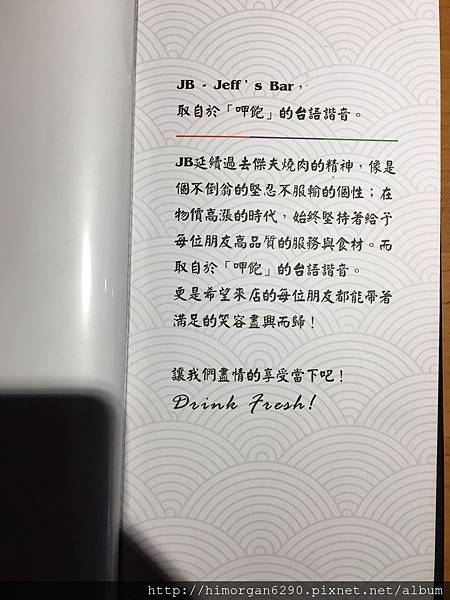 JB - Jeff's Bar，
取自於「呷飽」的台語諧音。
JB延續過去傑夫燒肉的精神，像是
個不倒翁的堅忍不服輸的個性；在
物價高漲的時代，始終堅持著給予
每位朋友高品質的服務與食材。而
取自於「呷飽」的台語諧音。
更是希望來店的每位朋友都能帶著
滿足的笑容盡興而歸！
讓我們盡情的享受當下吧！
Drink Fresh!
http://himorgan6290.pixnet.net/album